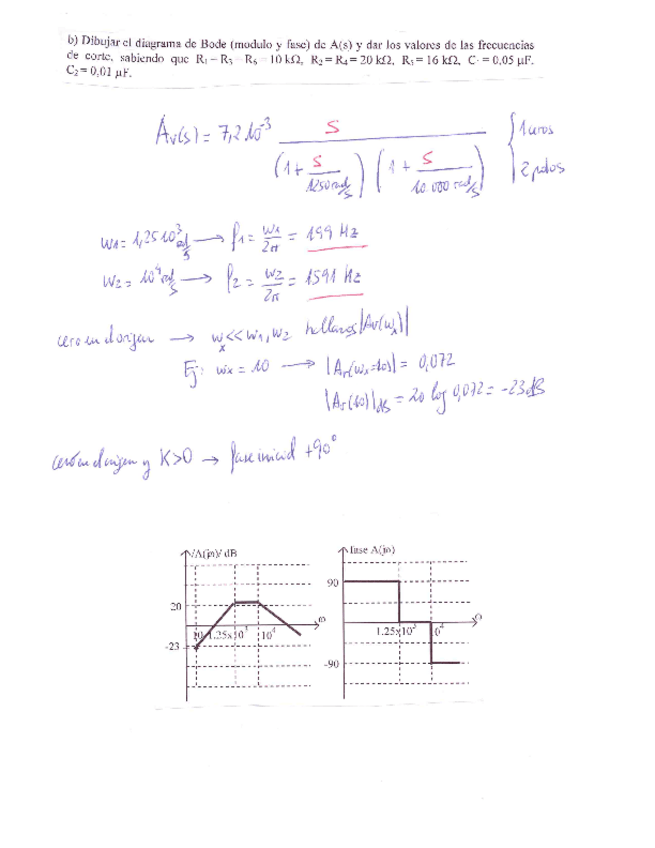 b) Dibujar el diagrama de Bode (modulo y fase) de A(s) y dar los valores de las frecuencias
de corte, sabiendo que R₁ = R₃ = R₆ = 10 kΩ, R₂ = R₄ = 20 kΩ, R₅ = 16 kΩ, C = 0,05 μF.
C₂ = 0,01 μF.
Av(s) = 7,2 10⁻³ s / (1 + s/1250 rad/s) (1 + s/10.000 rad/s) { 1 ceros
2 polos
w₁ = 1,25 10³ rad/s → f₁ = w₁/2π = 199 Hz
w₂ = 10⁴ rad/s → f₂ = w₂/2π = 1591 Hz
cero en el origen → wx << w₁, w₂ hallamos |Av(wx)|
Ej: wx = 10 → |Av(wx=10)| = 0,072
|Av(10)|dB = 20 log 0,072 = -23 dB
cero en el origen y K>0 → fase inicial +90°
/A(jω)/ dB
20
-23
10
1.25x10³
10⁴
ω
fase A(jω)
90
-90
1.25x10³
10⁴
ω